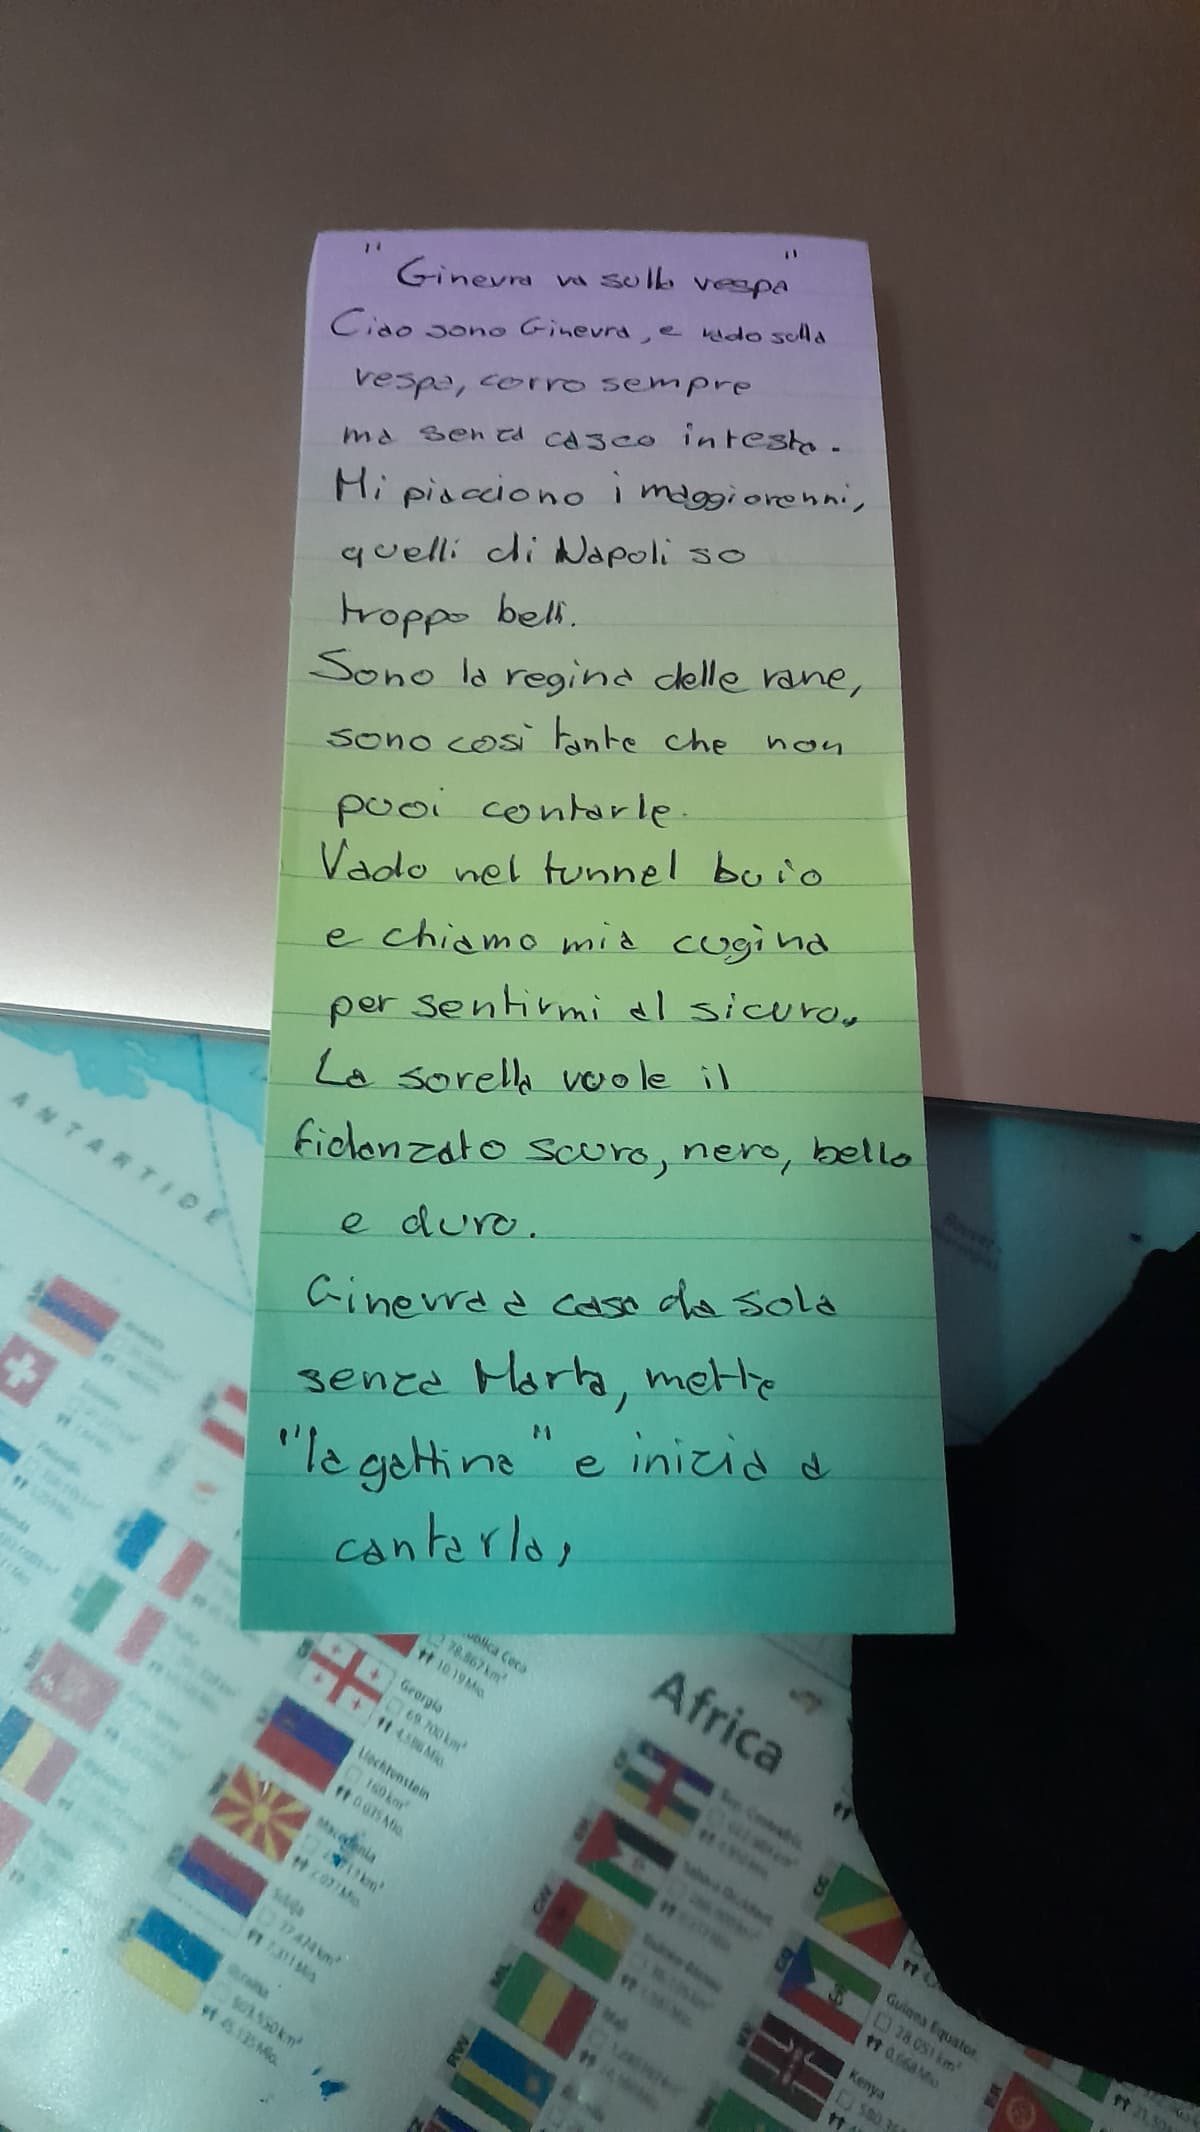 "Ginevra va sulla vespa"
Ciao sono Ginevra, e vado sulla
vespa, corro sempre
ma senza casco intesta.
Mi piacciono i maggiorenni,
quelli di Napoli so
troppo belli.
Sono la regina delle rane,
sono così tante che non
puoi contarle.
Vado nel tunnel buio
e chiamo mia cugina
per sentirmi al sicuro.
La sorella vuole il
fidanzato scuro, nero, bello
e duro.
Ginevra a casa da sola
senza Marta, mette
"la gattina" e inizia a
cantarla,
ANTARTIDE
Repubblica Ceca
78.867 km²
10.19 Mio.
Georgia
69.700 km²
4.586 Mio.
Liechtenstein
160 km²
0.035 Mio.
Macedonia
2.077 Mio.
Africa
Rep. Centrafric.
ML
Mali
RW
CG
GQ
Guinea Equator.
28.051 km²
0.668 Mio.
Kenya